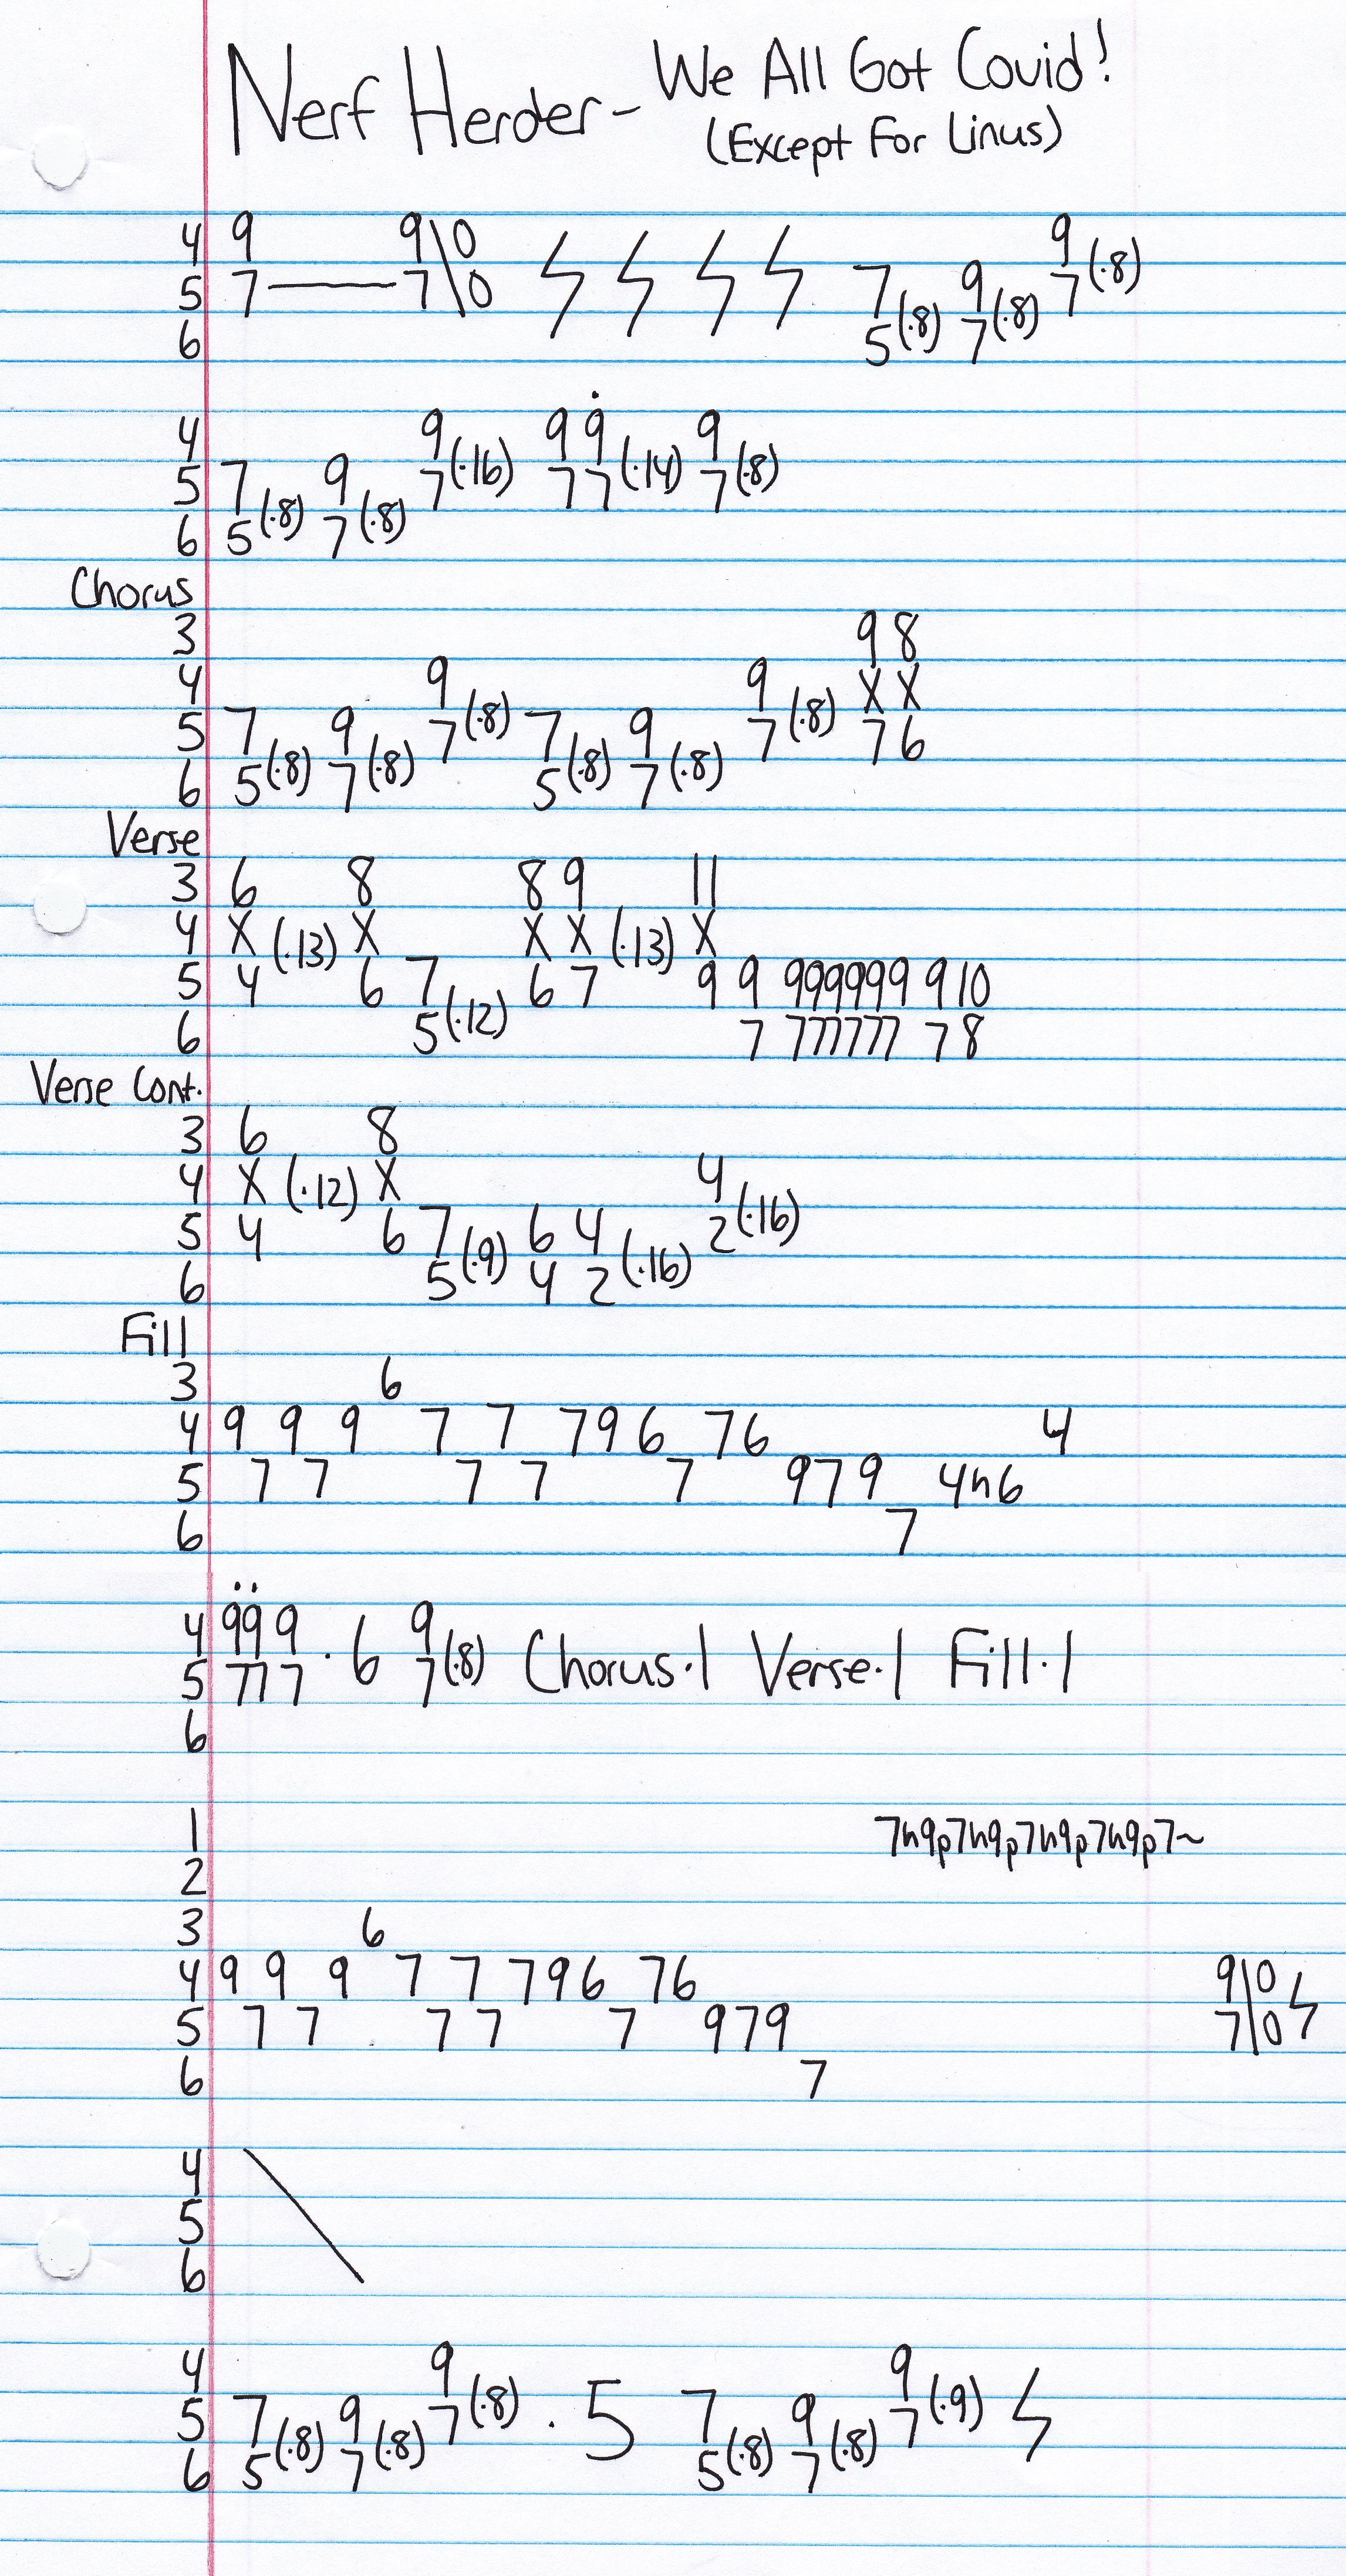 Nerf Herder - We All Got Covid!
(Except For Linus)
4 9 9\0
5 7——7\0 7 9 9 7(·8)
6 5(·8) 7(·8)
4 9 7(·16) 9 9 9
5 7 9 7 7(·14) 7(·8)
6 5(·8) 7(·8)
Chorus
3 9 8
4 9 9 X X
5 7 9 7(·8) 7 9 7(·8) 7 6
6 5(·8) 7(·8) 5(·8) 7(·8)
Verse
3 6 8 8 9 11
4 X (·13) X X X (·13) X
5 4 6 7 6 7 9 9 999999 9 10
6 5(·12) 7 777777 7 8
Verse Cont.
3 6 8
4 X (·12) X 4
5 4 6 7 6 4 2(·16)
6 5(·9) 4 2(·16)
Fill
3 6
4 9 9 9 7 7 7 9 6 7 6 4
5 7 7 7 7 7 9 7 9 4h6
6 7
4 9 9 9 · 6 9 Chorus·1 Verse·1 Fill·1
5 7 7 7 7(·8)
6
1 7h9p7h9p7h9p7h9p7~
2
3 6
4 9 9 9 7 7 7 9 6 7 6 9\0
5 7 7 7 7 7 9 7 9 7\0
6 7
4
5
6
4 9 9
5 7 9 7(·8) · 5 7 9 7(·9)
6 5(·8) 7(·8) 5(·8) 7(·8)